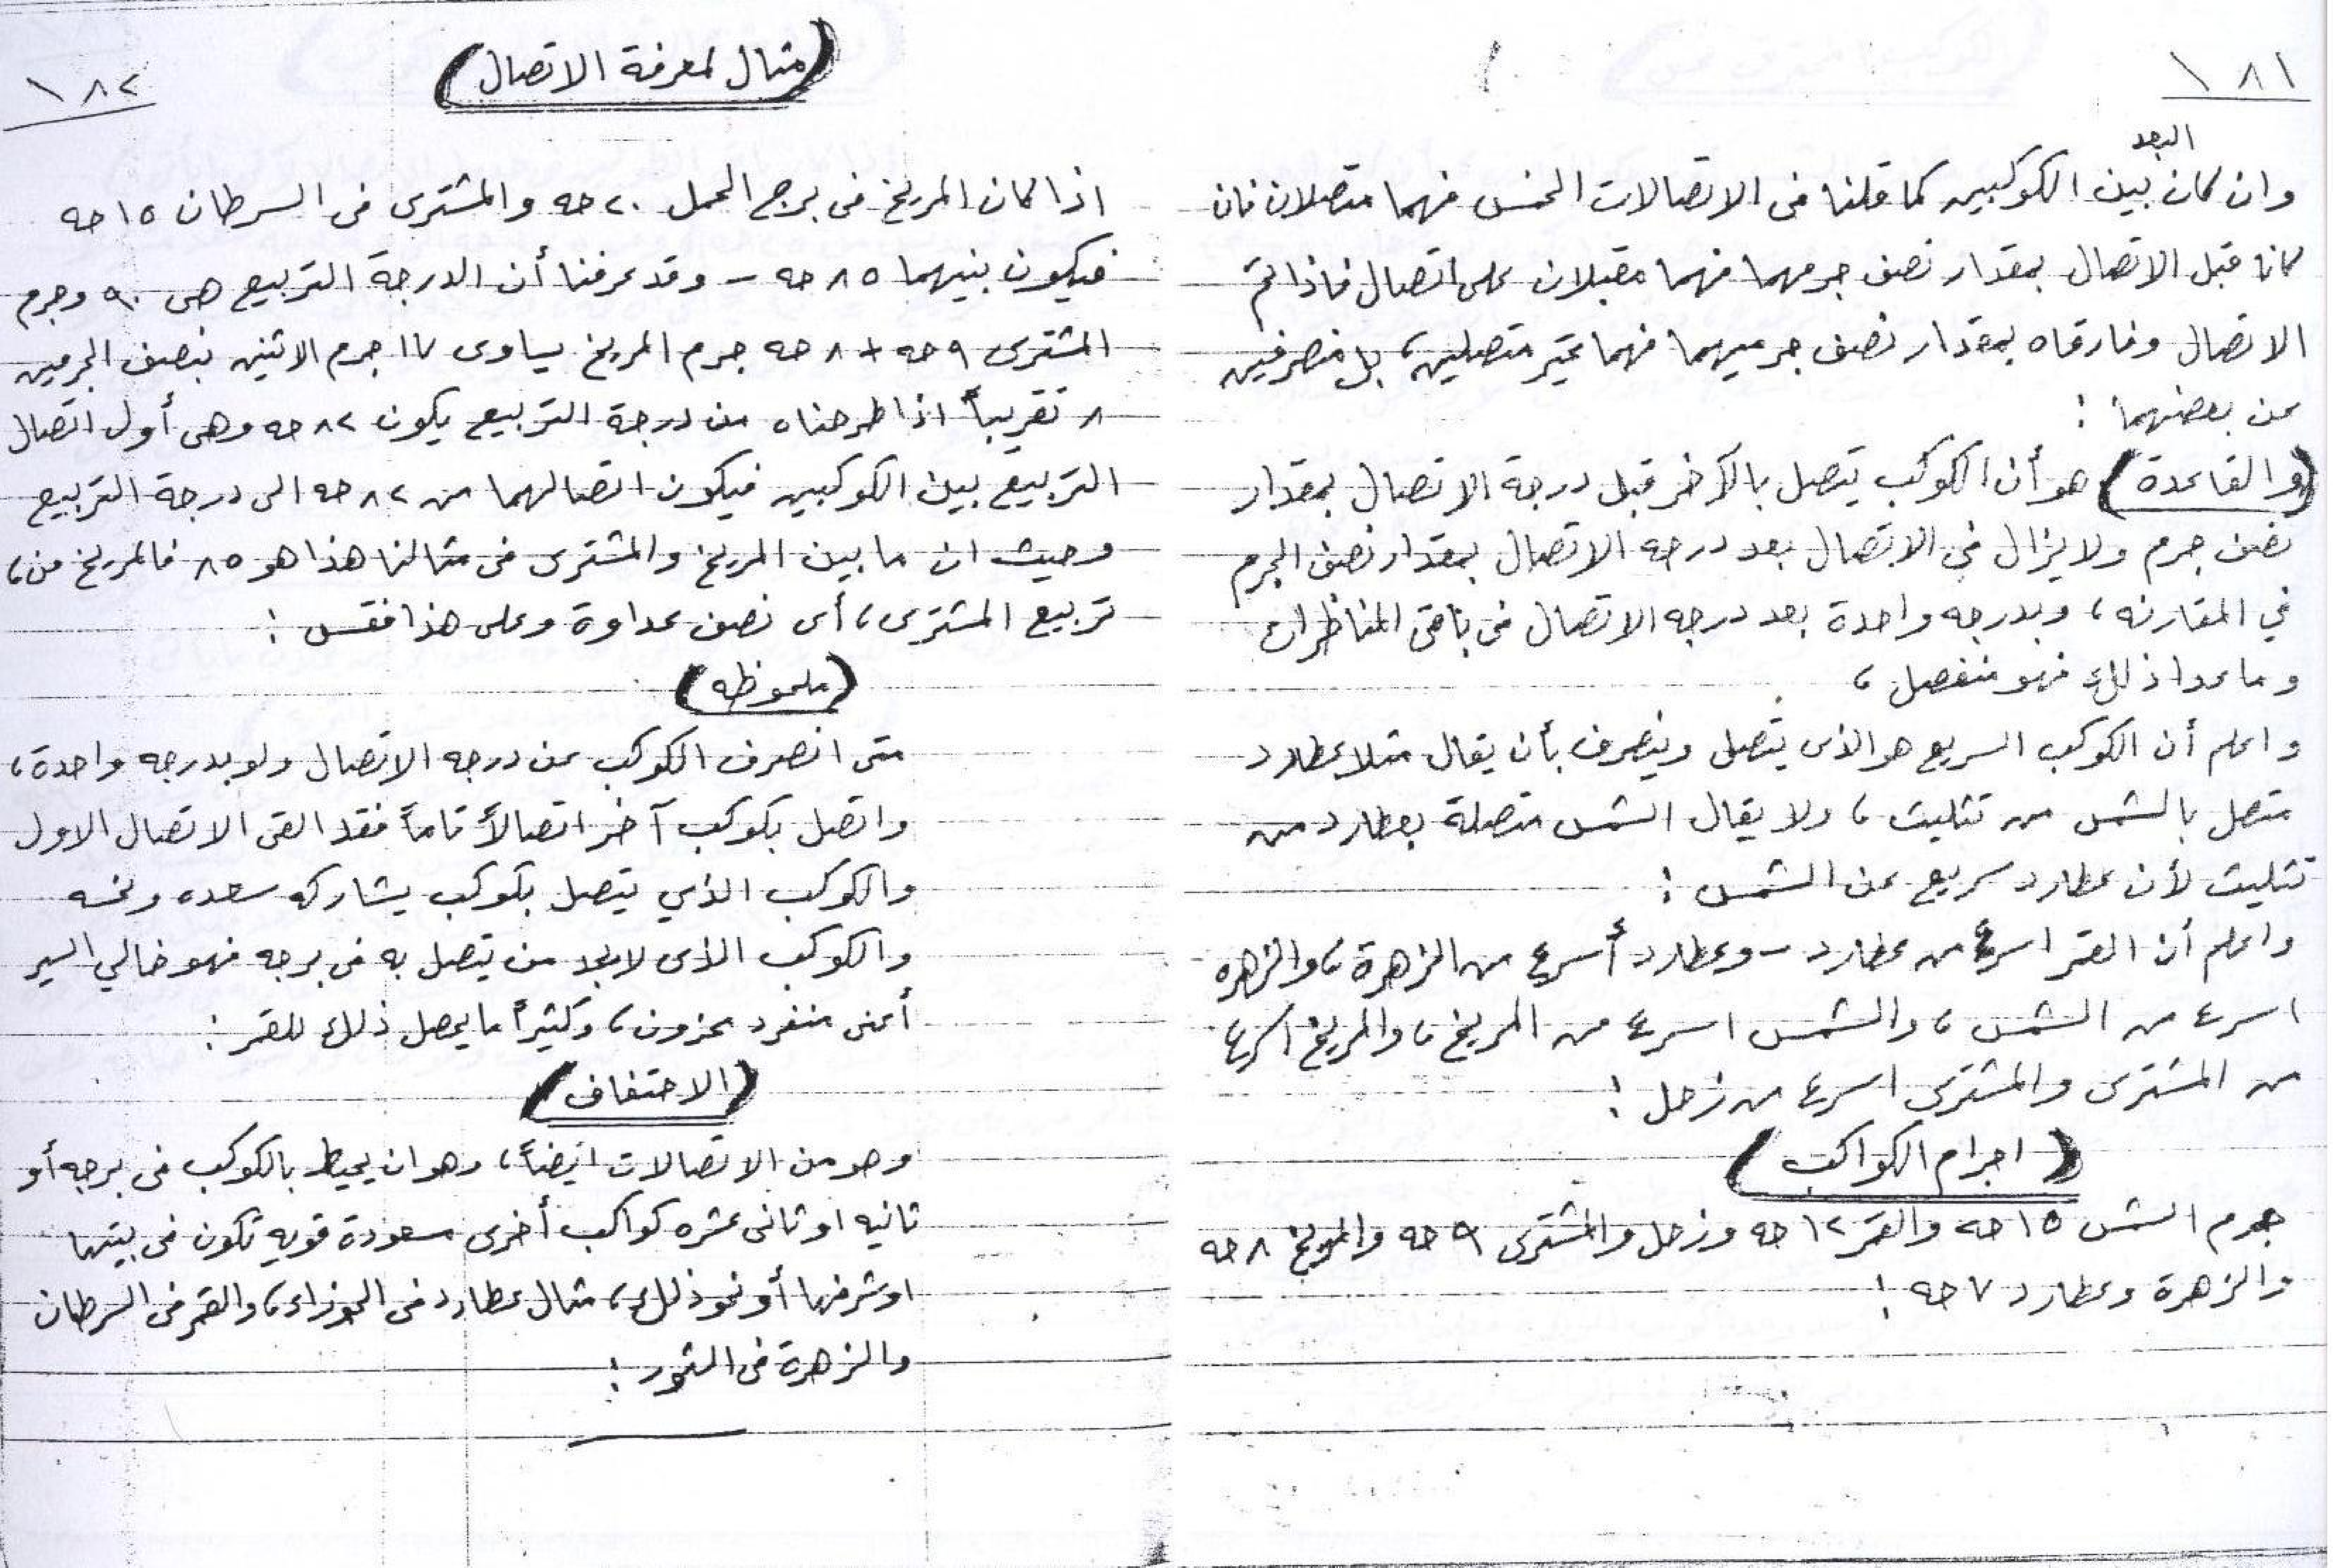 ١٨١
البعد
وان كان بين الكوكبين كما قلنا فى الاتصالات الخمس فهما متصلان فان
كانا قبل الاتصال بمقدار نصف جرمهما فهما مقبلان على اتصال فاذا تم
الاتصال وفارقاه بمقدار نصف جرميهما فهما غير متصلين، بل منصرفين
عن بعضهما :
(والقاعدة) هو أن الكوكب يتصل بالآخر قبل درجة الاتصال بمقدار
نصف جرم ولا يزال في الاتصال بعد درجه الاتصال بمقدار نصف الجرم
في المقارنه، وبدرجه واحدة بعد درجه الاتصال فى باقى المناظرات
وما عدا ذلك فهو منفصل،
واعلم أن الكوكب السريع هو الذى يتصل وينصرف بأن يقال مثلا عطارد
متصل بالشمس من تثليث، ولا يقال الشمس متصلة بعطارد من
تثليث لأن عطارد سريع عن الشمس :
واعلم أن القمر اسرع من عطارد - وعطارد أسرع من الزهرة، والزهره
اسرع من الشمس، والشمس اسرع من المريخ، والمريخ اسرع
من المشترى والمشترى اسرع من زحل :
(اجرام الكواكب)
جرم الشمس ١٥ حه والقمر ١٢ حه وزحل والمشترى ٩ حه والمريخ ٨ حه
والزهرة وعطارد ٧ حه :
١٨٢
(مثال لمعرفة الاتصال)
اذا كان المريخ فى برج الحمل ٢٠ حه والمشترى فى السرطان ١٥ حه
فيكون بنيهما ٨٥ حه - وقد عرفنا أن الدرجة التربيع هى ٩٠ وجرم
المشترى ٩ حه + ٨ حه جرم المريخ يساوى ١٧ جرم الاثنين فنصف الجرمين
٨ تقريباً اذا طرحناه من درجة التربيع يكون ٨٢ حه وهى أول اتصال
التربيع بين الكوكبين فيكون اتصالهما من ٨٢ حه الى درجة التربيع
وحيث ان ما بين المريخ والمشترى فى مثالنا هذا هو ٨٥ فالمريخ فى،
تربيع المشترى، أى نصف عداوة وعلى هذا فقس :
(ملحوظه)
متى انصرف الكوكب عن درجه الاتصال ولو بدرجه واحدة،
واتصل بكوكب آخر اتصالاً تاماً فقد القى الاتصال الاول
والكوكب الذي يتصل بكوكب يشاركه سعده ونحسه
والكوكب الذى لا يجد من يتصل به فى برجه فهو خالي السير
أعنى منفرد محزون، وكثيراً ما يحصل ذلك للقمر :
(الاحتفاف)
وهو من الاتصالات ايضاً، وهو ان يحيط بالكوكب فى برجه أو
ثانيه او ثانى عشره كواكب أخرى مسعودة قويه تكون فى بيتها
او شرفها أو نحو ذلك، مثال عطارد فى الجوزاء، والقمر فى السرطان
والزهرة فى الثور :